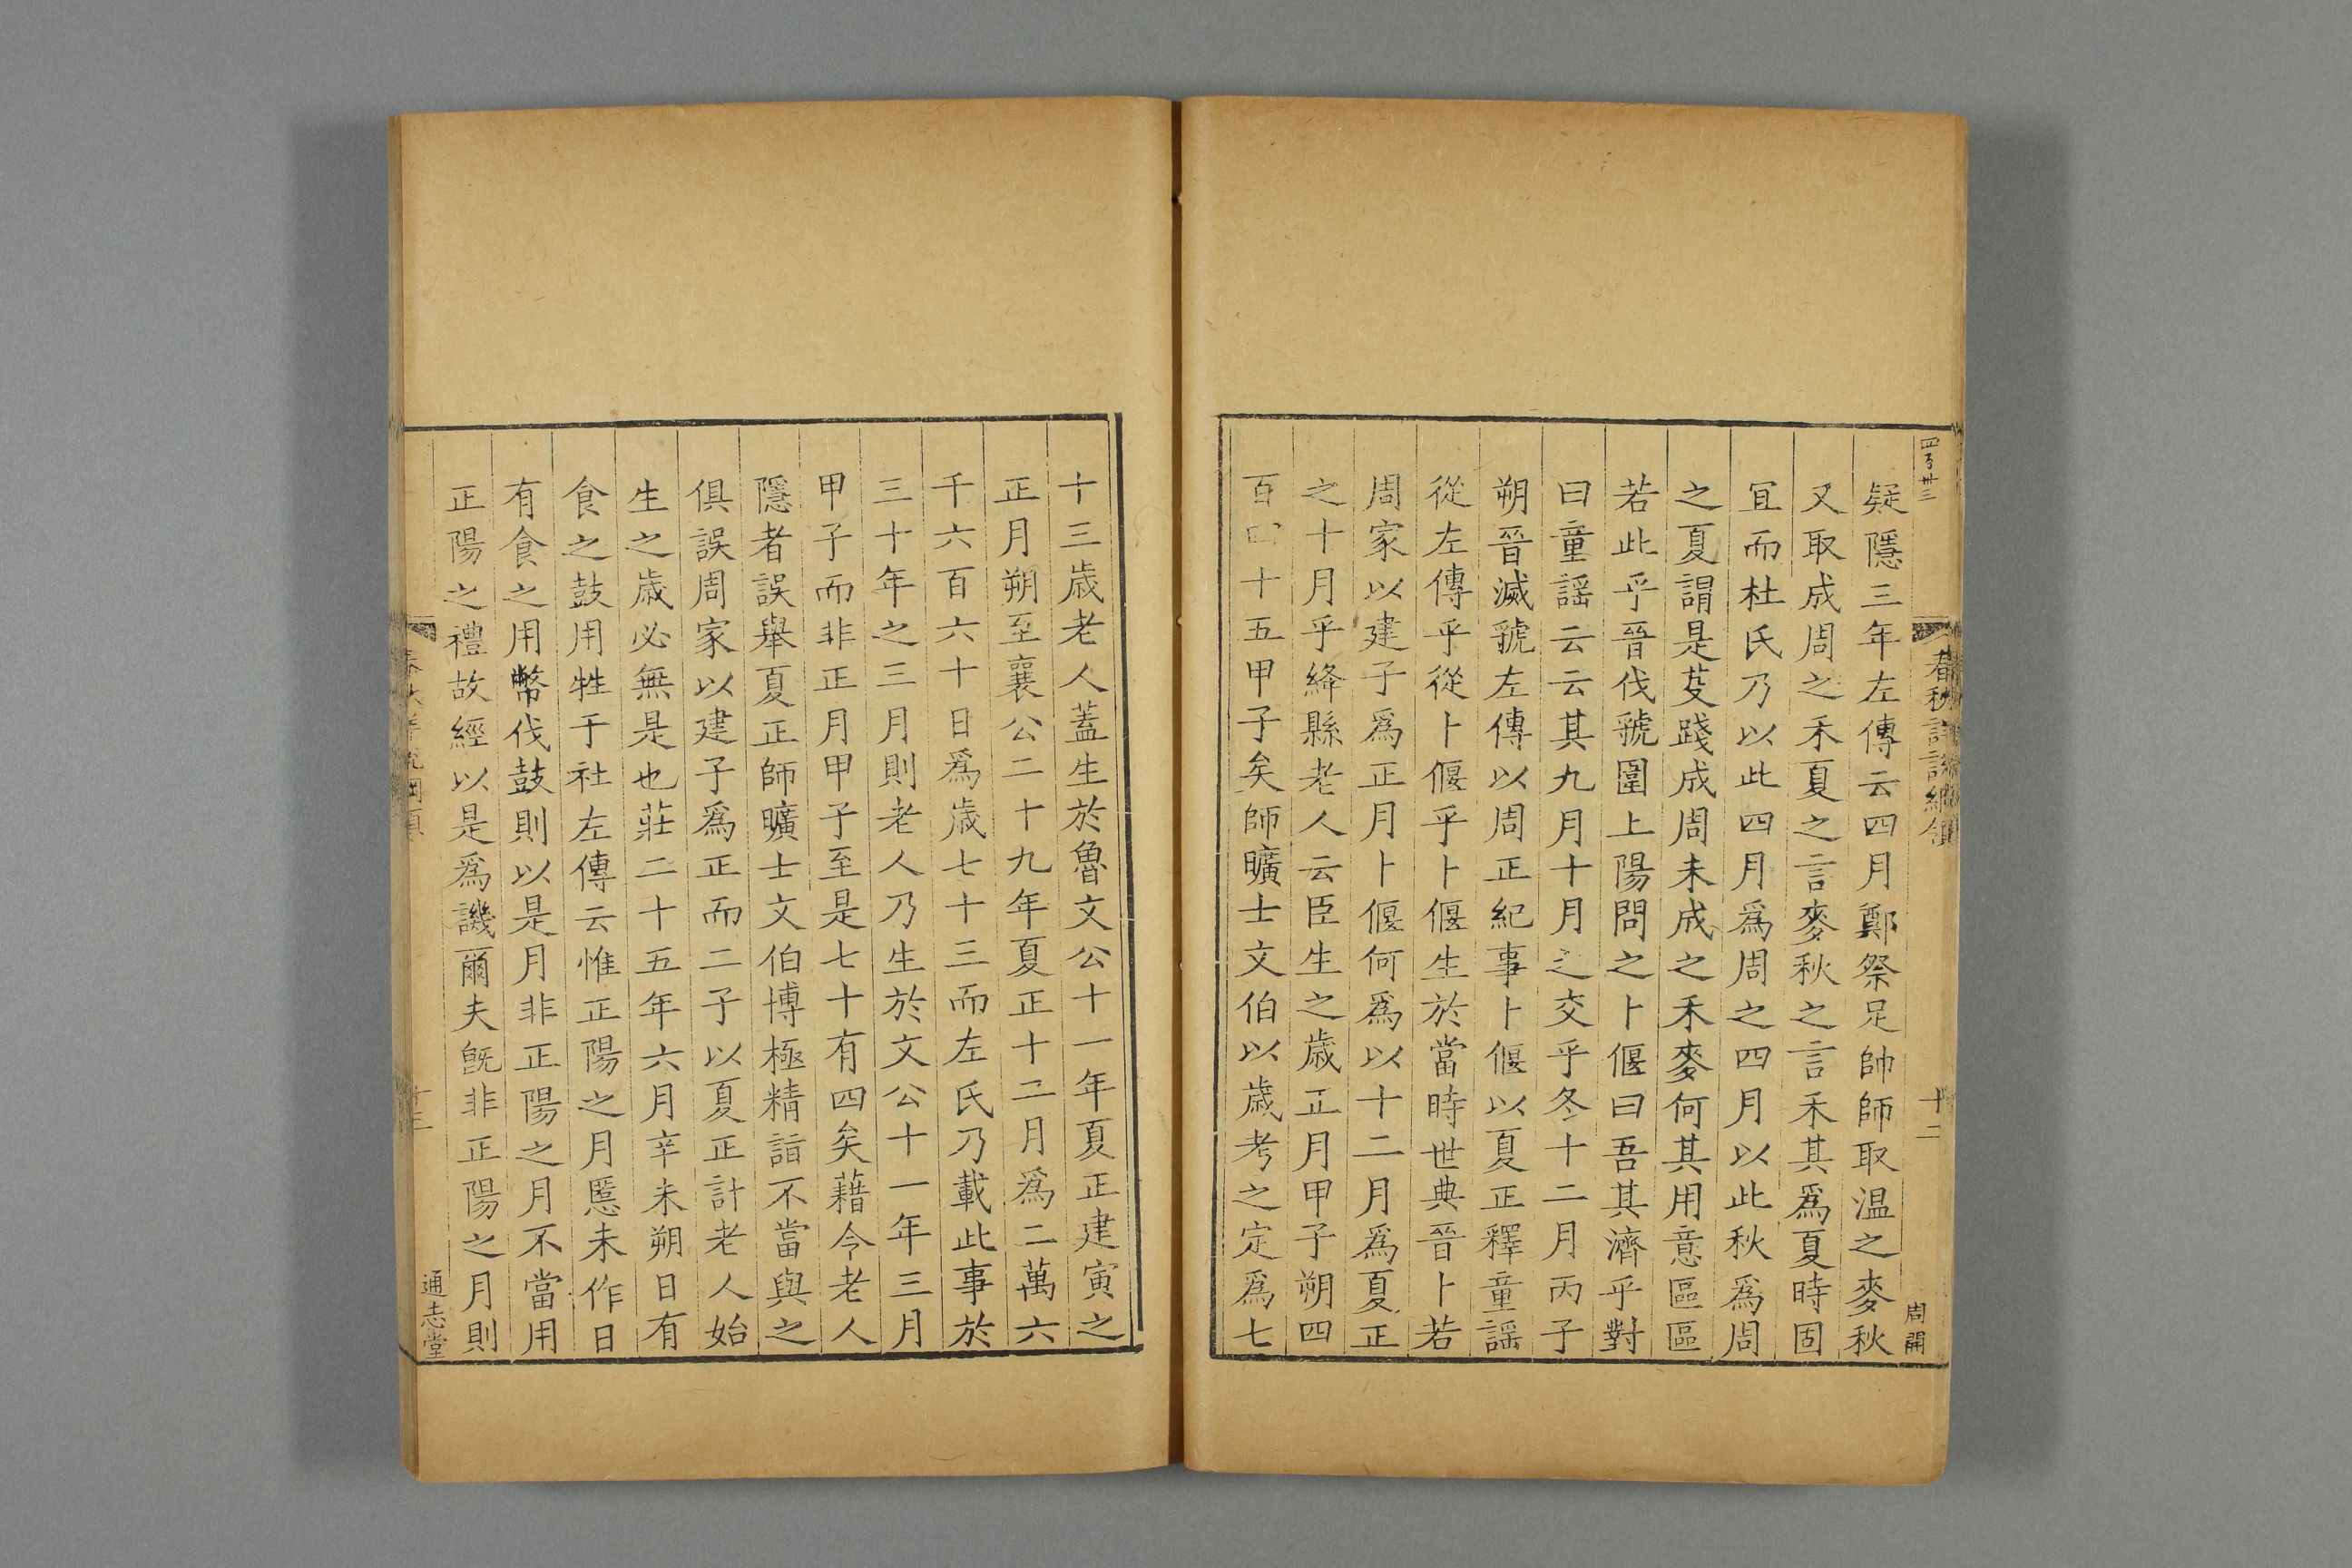 春秋詳說綱領
十二
周開
疑隱三年左傳云四月鄭祭足帥師取温之麥秋
又取成周之禾夏之言麥秋之言禾其爲夏時固
宜而杜氏乃以此四月爲周之四月以此秋爲周
之夏謂是芟踐成周未成之禾麥何其用意區區
若此乎晉伐虢圍上陽問之卜偃曰吾其濟乎對
曰童謡云云其九月十月之交乎冬十二月丙子
朔晉滅虢左傳以周正紀事卜偃以夏正釋童謡
從左傳乎從卜偃乎卜偃生於當時世典晉卜若
周家以建子爲正月卜偃何爲以十二月爲夏正
之十月乎絳縣老人云臣生之歲正月甲子朔四
百四十五甲子矣師曠士文伯以歲考之定爲七
十三歲老人蓋生於魯文公十一年夏正建寅之
正月朔至襄公二十九年夏正十二月爲二萬六
千六百六十日爲歲七十三而左氏乃載此事於
三十年之三月則老人乃生於文公十一年三月
甲子而非正月甲子至是七十有四矣藉令老人
隱者誤舉夏正師曠士文伯博極精詣不當與之
俱誤周家以建子爲正而二子以夏正計老人始
生之歲必無是也莊二十五年六月辛未朔日有
食之鼓用牲于社左傳云惟正陽之月慝未作日
有食之用幣伐鼓則以是月非正陽之月不當用
正陽之禮故經以是爲譏爾夫旣非正陽之月則
十三
通志堂